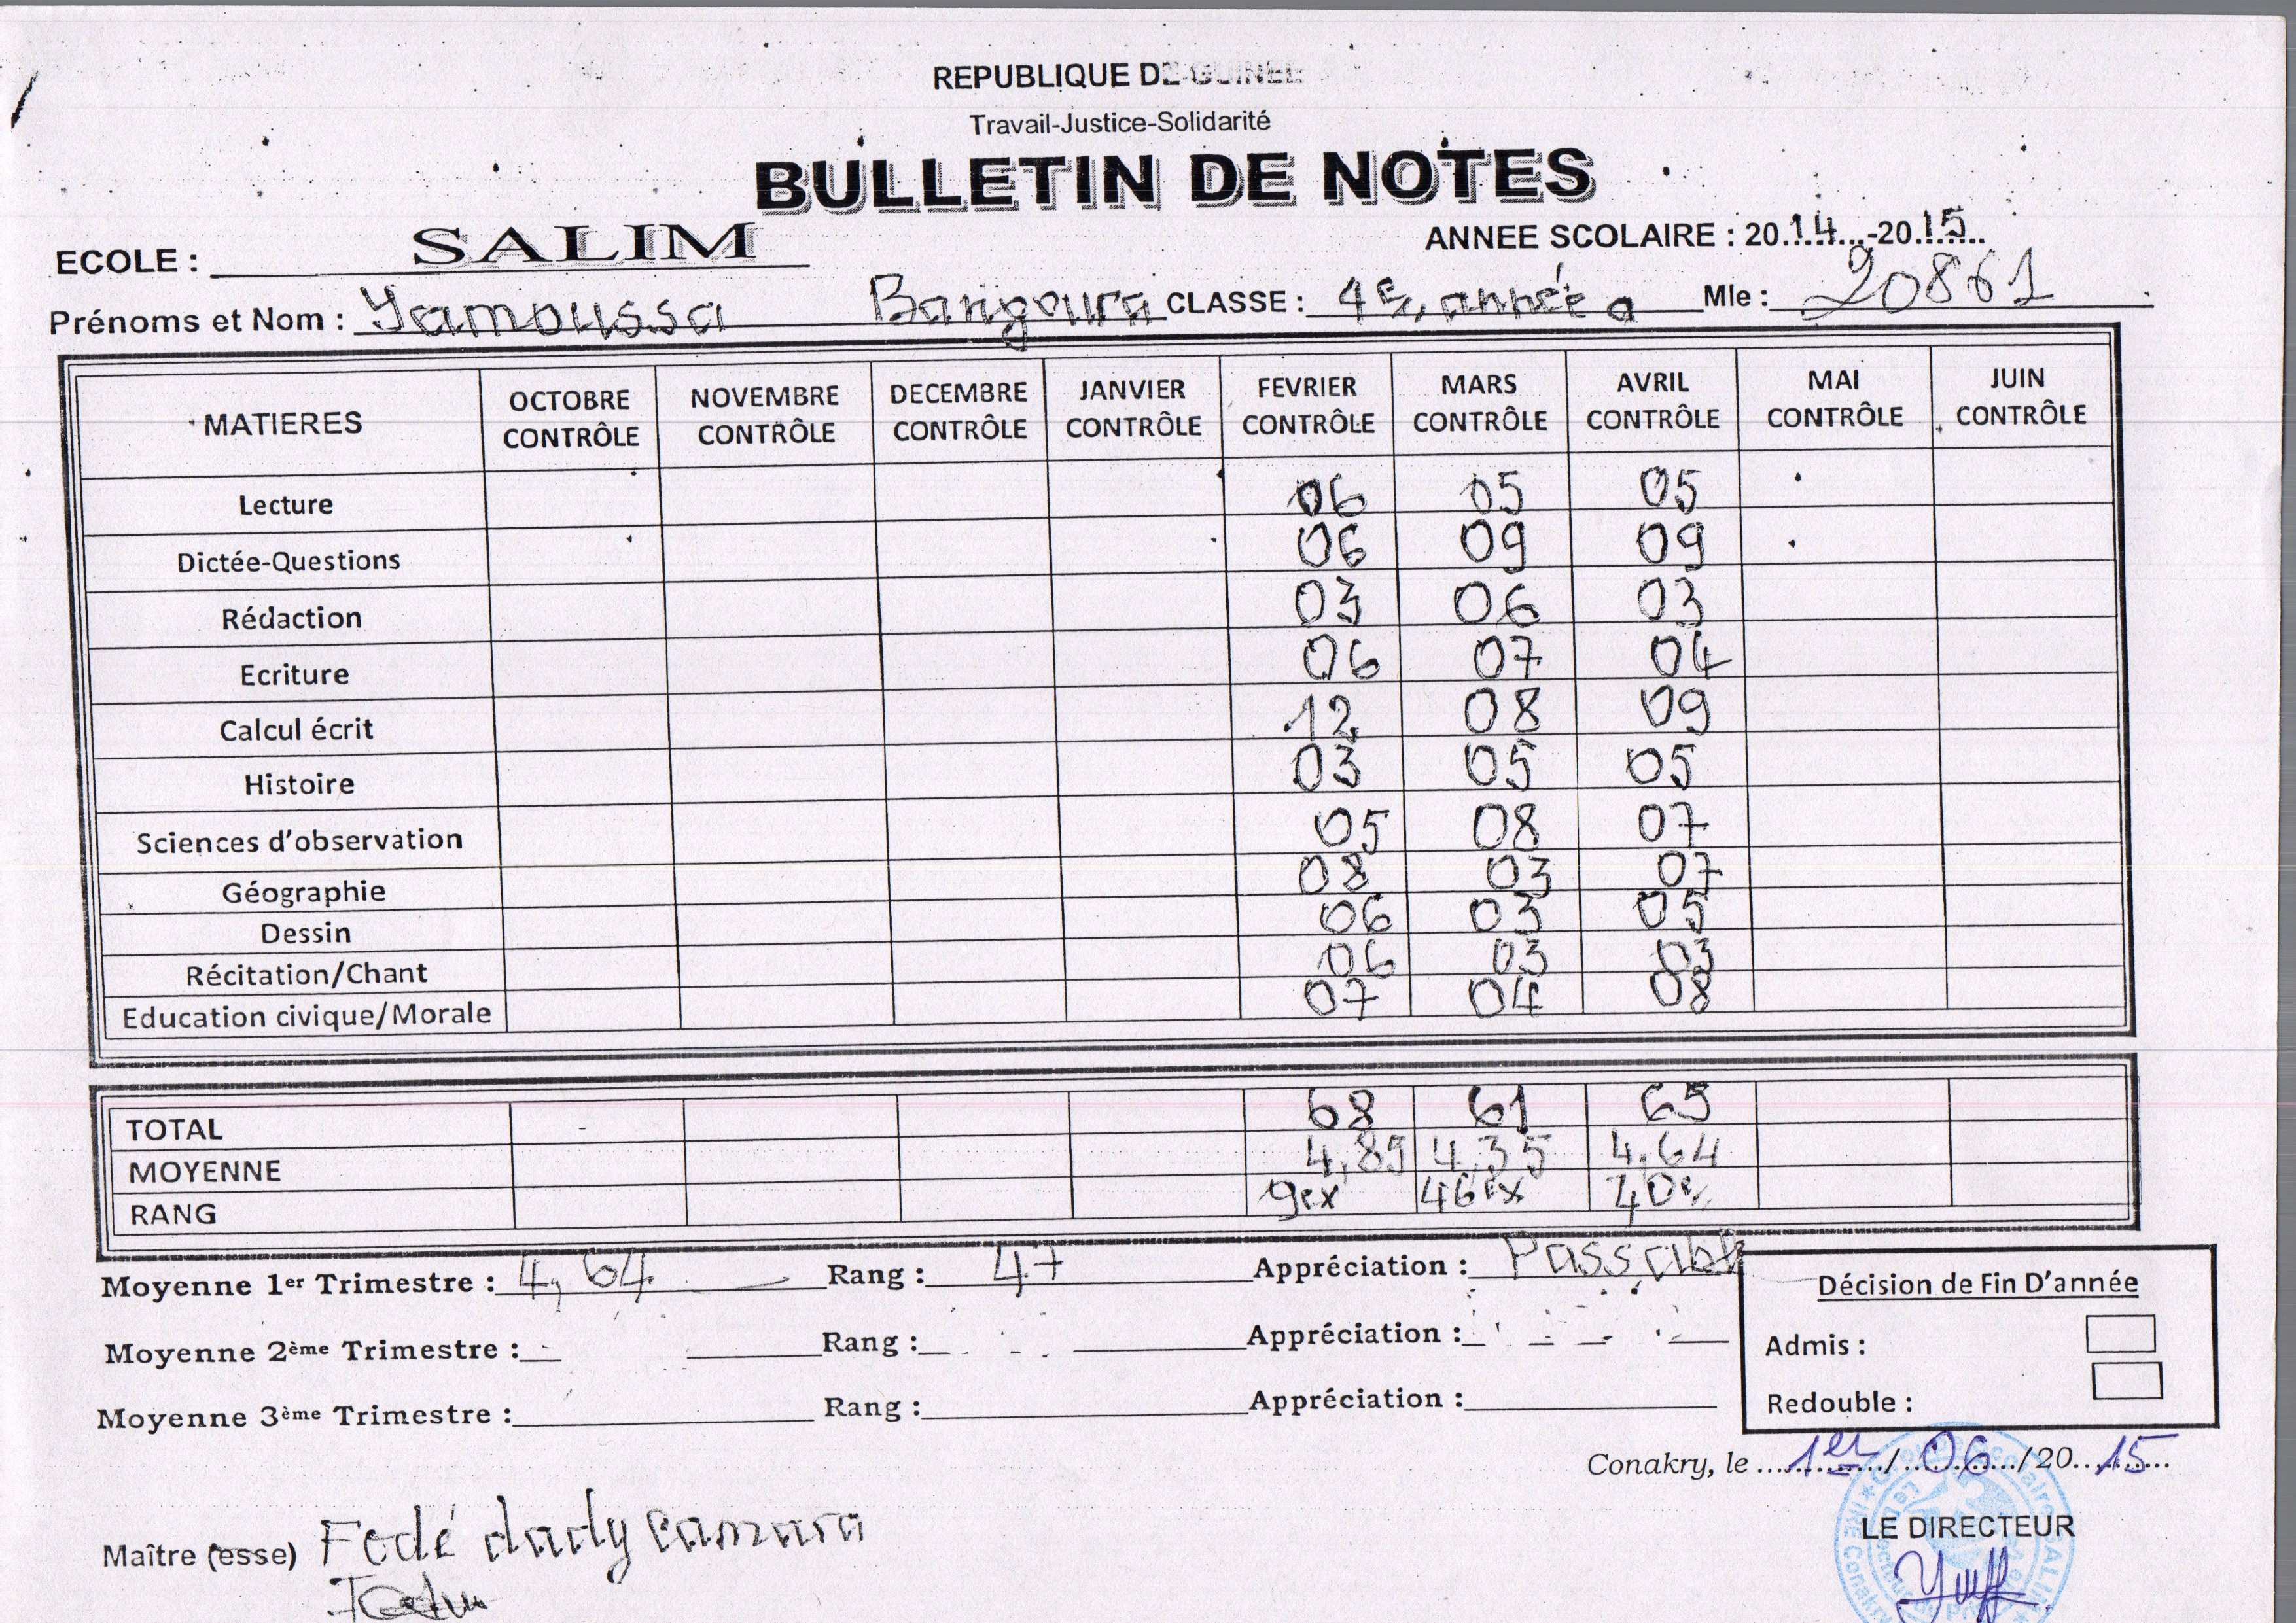 REPUBLIQUE DE GUINEE
Travail-Justice-Solidarité
BULLETIN DE NOTES
ECOLE : SALIM ANNEE SCOLAIRE : 2014-2015
Prénoms et Nom : Yamoussa Bangoura CLASSE : 4e année a Mle : 20861
MATIERES OCTOBRE CONTRÔLE NOVEMBRE CONTRÔLE DECEMBRE CONTRÔLE JANVIER CONTRÔLE FEVRIER CONTRÔLE MARS CONTRÔLE AVRIL CONTRÔLE MAI CONTRÔLE JUIN CONTRÔLE
Lecture 06 05 05
Dictée-Questions 06 09 09
Rédaction 03 06 03
Ecriture 06 07 04
Calcul écrit 12 08 09
Histoire 03 05 05
Sciences d'observation 05 08 07
Géographie 08 03 07
Dessin 06 03 05
Récitation/Chant 06 03 03
Education civique/Morale 07 04 08
TOTAL 68 61 65
MOYENNE 4,85 4,35 4,64
RANG 9ex 46ex 40e
Moyenne 1er Trimestre : 4,64 Rang : 47 Appréciation : Passable
Moyenne 2ème Trimestre : Rang : Appréciation :
Moyenne 3ème Trimestre : Rang : Appréciation :
Décision de Fin D'année
Admis :
Redouble :
Conakry, le 1er/06/2015
LE DIRECTEUR
Maître (esse) Fodé dady camara